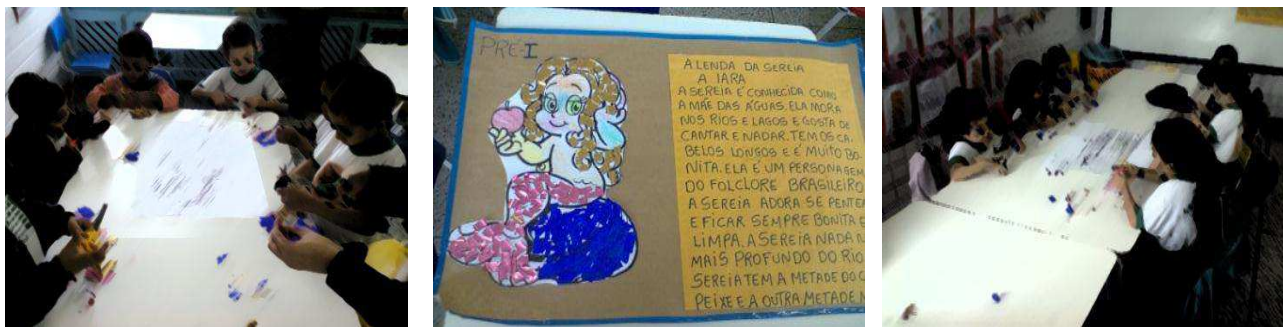 PRÉ-I
A LENDA DA SEREIA
A IARA
A SEREIA É CONHECIDA COMO
A MÃE DAS ÁGUAS. ELA MORA
NOS RIOS E LAGOS E GOSTA DE
CANTAR E NADAR. TEM OS CA-
BELOS LONGOS E É MUITO BO-
NITA. ELA É UM PERSONAGEM
DO FOLCLORE BRASILEIRO
A SEREIA ADORA SE PENTE
E FICAR SEMPRE BONITA E
LIMPA. A SEREIA NADA N
MAIS PROFUNDO DO RIO
SEREIA TEM A METADE DO C
PEIXE E A OUTRA METADE